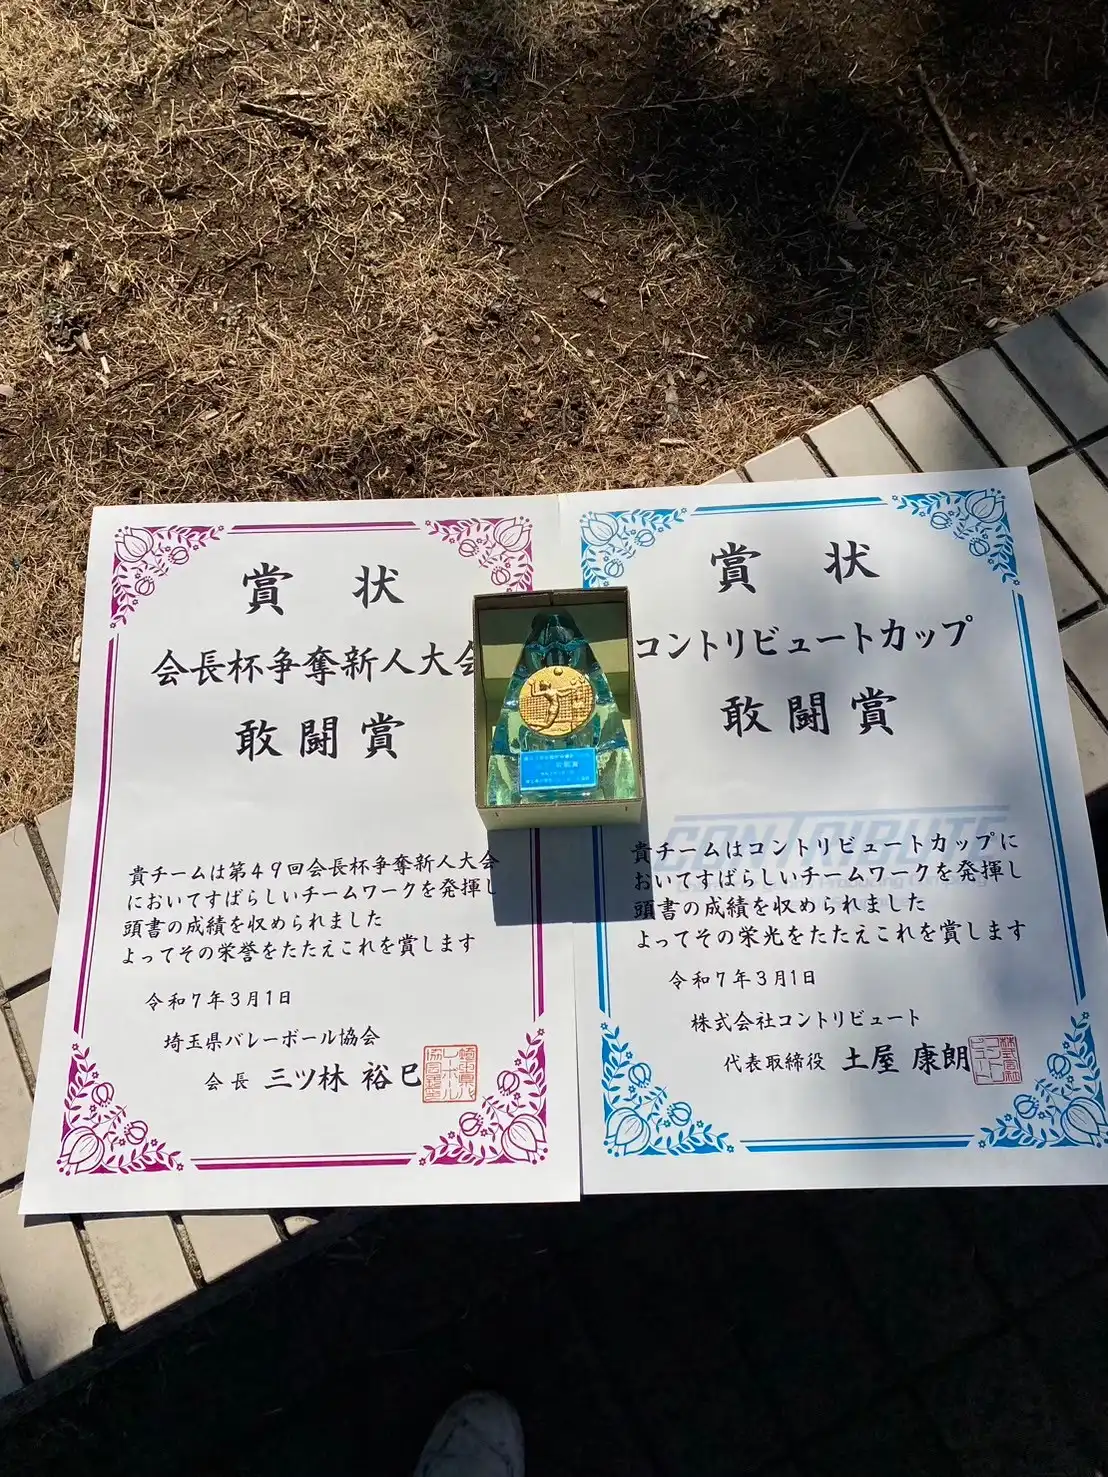 賞 状
会長杯争奪新人大会
敢闘賞
貴チームは第49回会長杯争奪新人大会
においてすばらしいチームワークを発揮し
頭書の成績を収められました
よってその栄誉をたたえこれを賞します
令和7年3月1日
埼玉県バレーボール協会
会長 三ツ林 裕巳
賞 状
コントリビュートカップ
敢闘賞
CONTRIBUTE
貴チームはコントリビュートカップに
おいてすばらしいチームワークを発揮し
頭書の成績を収められました
よってその栄光をたたえこれを賞します
令和7年3月1日
株式会社コントリビュート
代表取締役 土屋 康朗
株式会社コントリビュート